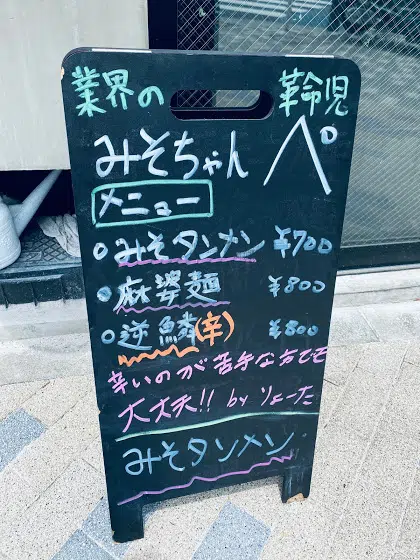 業界の 革命児
みそちゃんペ
メニュー
みそタンメン ¥700
麻婆麺 ¥800
逆鱗(辛) ¥800
辛いのが苦手な方でも
大丈夫!! by りょーた
みそタンメン